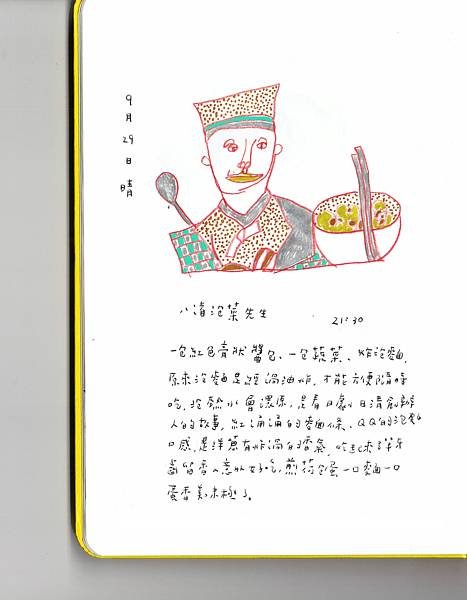 9月29日 晴
八道泡菜先生
21:30
一包紅色膏狀醬包、一包蔬菜、炸泡麵,
原來泡麵是經過油炸,才能方便隨時
吃,泡熱水會還原,是看日劇日清創辦
人的故事,紅通通的麵條、QQ的泡麵
口感,是洋蔥有炸過的香氣,吃起來
齒留香,意外好吃,煎荷包蛋一口麵一口
蛋香美味極了。